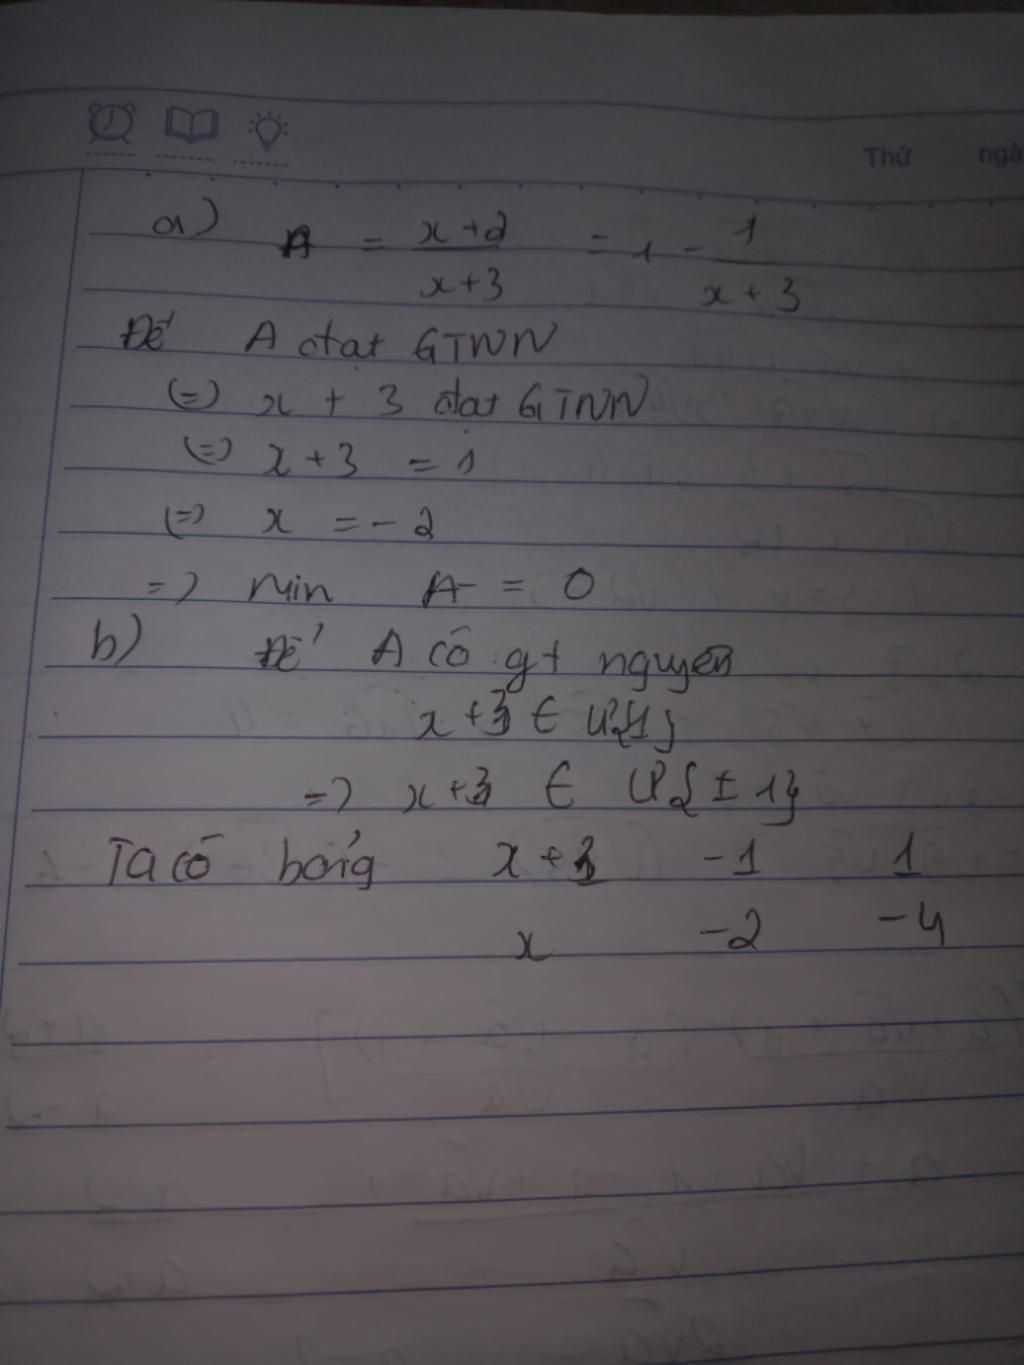 Thứ ngà
a) A = x+2 / x+3 = 1 - 1 / x+3
Để A đạt GTNN
(=) x + 3 đạt GTNN
(=) x+3 = 1
(=) x = -2
=) Min A = 0
b) Để A có gt nguyên
x+3 ∈ Ư{1}
=) x+3 ∈ Ư{±1}
Ta có bảng x+3 -1 1
x -2 -4